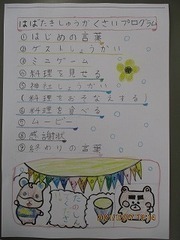 はばたきしゅうかくさいプログラム
①はじめの言葉
②ゲストしょうかい
③ミニゲーム
④料理を見せる
⑤神社しょうかい
(料理をおそなえする)
⑥料理を食べる
⑦ムービー
⑧感謝状
⑨終わりの言葉